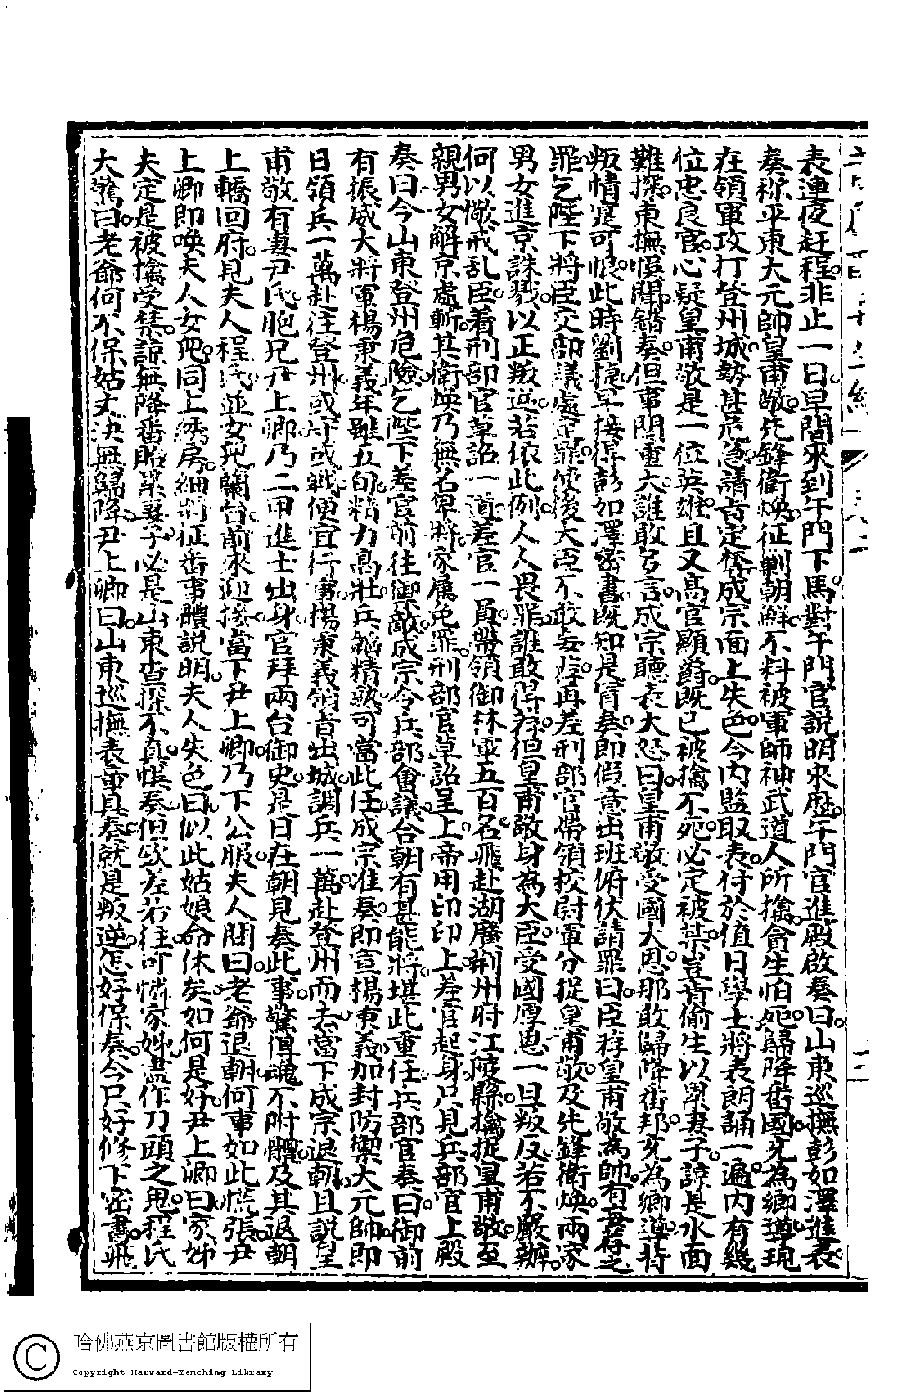 表連夜赶程非止一日早間來到午門下馬對午門官說明來歷午門官進殿啟奏曰山東巡撫彭如澤進表
奏称平東大元帥皇甫敬先鋒衛煥征剿朝鮮不料被軍師神武道人所擒貪生怕死歸降番國充為鄉導現
在領軍攻打登州城勢甚危急請旨定奪成宗面上失色令内監取表付於值日學士將表朗誦一遍内有幾
位忠良官心疑皇甫敬是一位英雄且又高官顯爵既已被擒不死必定被禁豈肯偷生以累妻子諒是水面
難探東撫悞聞錯奏但事関重大誰敢多言成宗聽表大怒曰皇甫敬受國大恩那敢歸降番邦充為鄉導背
叛情寔可恨此時劉捷早接得彭如澤密書既知是寔奏即假意出班俯伏請罪曰臣荐皇甫敬為帥有妄荐之
罪乞陛下將臣交部議處定罪使後大臣不敢妄荐再差刑部官帶領校尉軍分捉皇甫敬及先鋒衛煥兩家
男女進京誅戮以正叛逆若依此例人人畏罪誰敢得荐但皇甫敬身為大臣受國厚恩一旦叛反若不嚴辦
何以儆戒乱臣着刑部官草詔一道差官一員帶領御林軍五百名飛赴湖廣荆州府江陵縣擒捉皇甫敬至
親男女解京處斬其衛煥乃無名卑將家属免罪刑部官草詔呈上帝用印印上差官起身只見兵部官上殿
奏曰今山東登州危險乞陛下差官前往御敵成宗令兵部會議合朝有甚能將堪此重任兵部官奏曰御前
有振威大將軍楊秉義年雖五旬精力高壯兵韜精熟可當此任成宗准奏即宣楊秉義加封防禦大元帥即
日領兵一萬赴往登州或守或戰便宜行事楊秉義領旨出城調兵一萬赴登州而去當下成宗退朝且說皇
甫敬有妻尹氏胞兄尹上卿乃二甲進士出身官拜兩台御史是日在朝見奏此事驚得魂不附體及其退朝
上轎回府見夫人程氏並女兒蘭台前來迎接當下尹上卿乃下公服夫人問曰老爺退朝何事如此慌張尹
上卿即喚夫人女兒同上綉房細將征番事體說明夫人失色曰似此姑娘命休矣如何是好尹上卿曰家姊
夫定是被擒受禁諒無降番貽累妻子必是山東查探不真悞奏但欽差若往可憐家姊盡作刀頭之鬼程氏
大驚曰老爺何不保姑丈決無歸降尹上卿曰山東巡撫表章具奏就是叛逆怎好保奏今只好修下密書飛
哈佛燕京圖書館版權所有
Copyright Harvard-Yenching Library